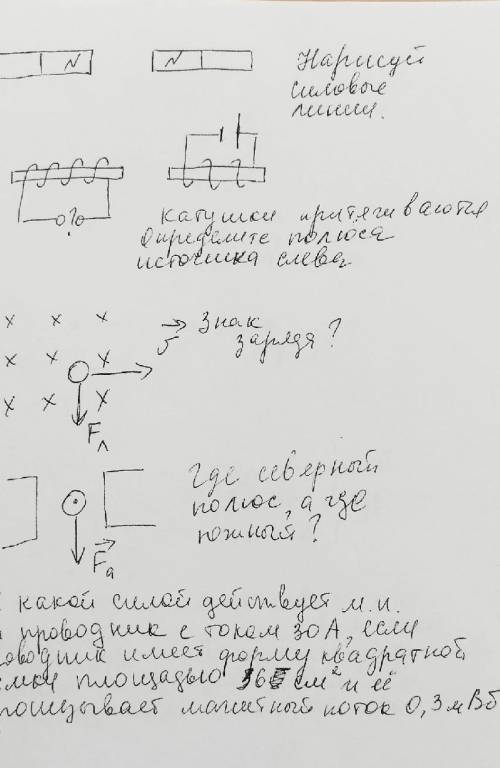 N N Нарисуй
силовые
линии.
Катушки притягиваются
Определите полюса
источника слева
x x x v Знак
x x x заряда?
x x x
Fл
Где северный
полюс, а где
южный?
Fa
какой силой действует м.п.
проводник с током 30А, если
оводник имеет форму квадратной
мки площадью см² и её
ронизывает магнитный поток 0,3 мВб